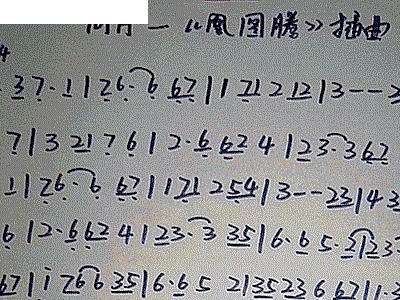 一《凤图腾》插曲
4
·37·1|76·6 67|1 1 71 2 12|3--2
7|3 21 7 6|2·6 62 4|23·3 67
1|76·6 67|1 1 71 2 54|3--23|43
6|2·6 62 4|23·3 35|6·65·3123
67|i 766 35|6·65 2 | 3523 6 67|1·3